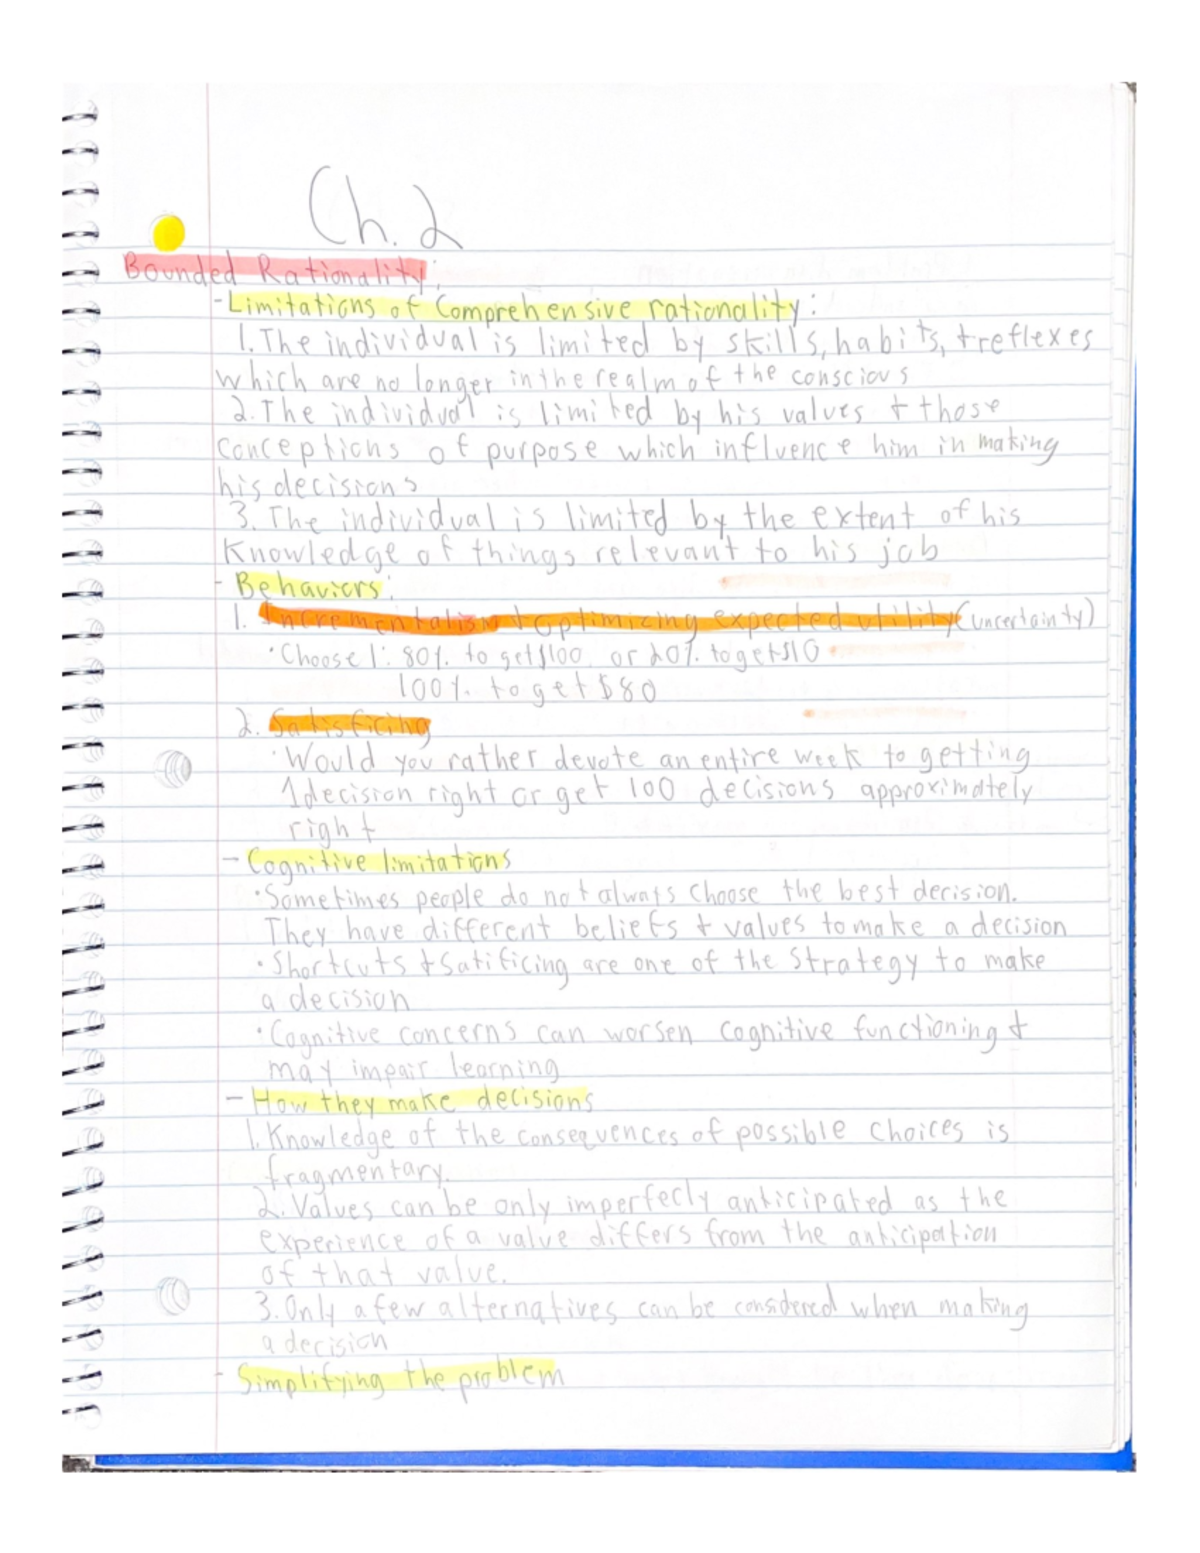 Ch. 2
Bounded Rationality:
- Limitations of Comprehensive rationality:
1. The individual is limited by skills, habits, + reflexes
which are no longer in the realm of the conscious
2. The individual is limited by his values + those
conceptions of purpose which influence him in making
his decisions
3. The individual is limited by the extent of his
Knowledge of things relevant to his job
- Behaviors:
1. Incrementalism + optimizing expected utility (uncertainty)
• Choose 1: 80% to get $100 or 20% to get $10
100% to get $80
2. Satisficing
• Would you rather devote an entire week to getting
1 decision right or get 100 decisions approximately
right
- Cognitive limitations
• Sometimes people do not always choose the best decision.
They have different beliefs + values to make a decision
• Shortcuts + Satificing are one of the Strategy to make
a decision
• Cognitive concerns can worsen cognitive functioning +
may impair learning
- How they make decisions
1. Knowledge of the consequences of possible choices is
fragmentary.
2. Values can be only imperfecly anticipated as the
experience of a value differs from the anticipation
of that value.
3. Only a few alternatives can be considered when making
a decision
- Simplifying the problem